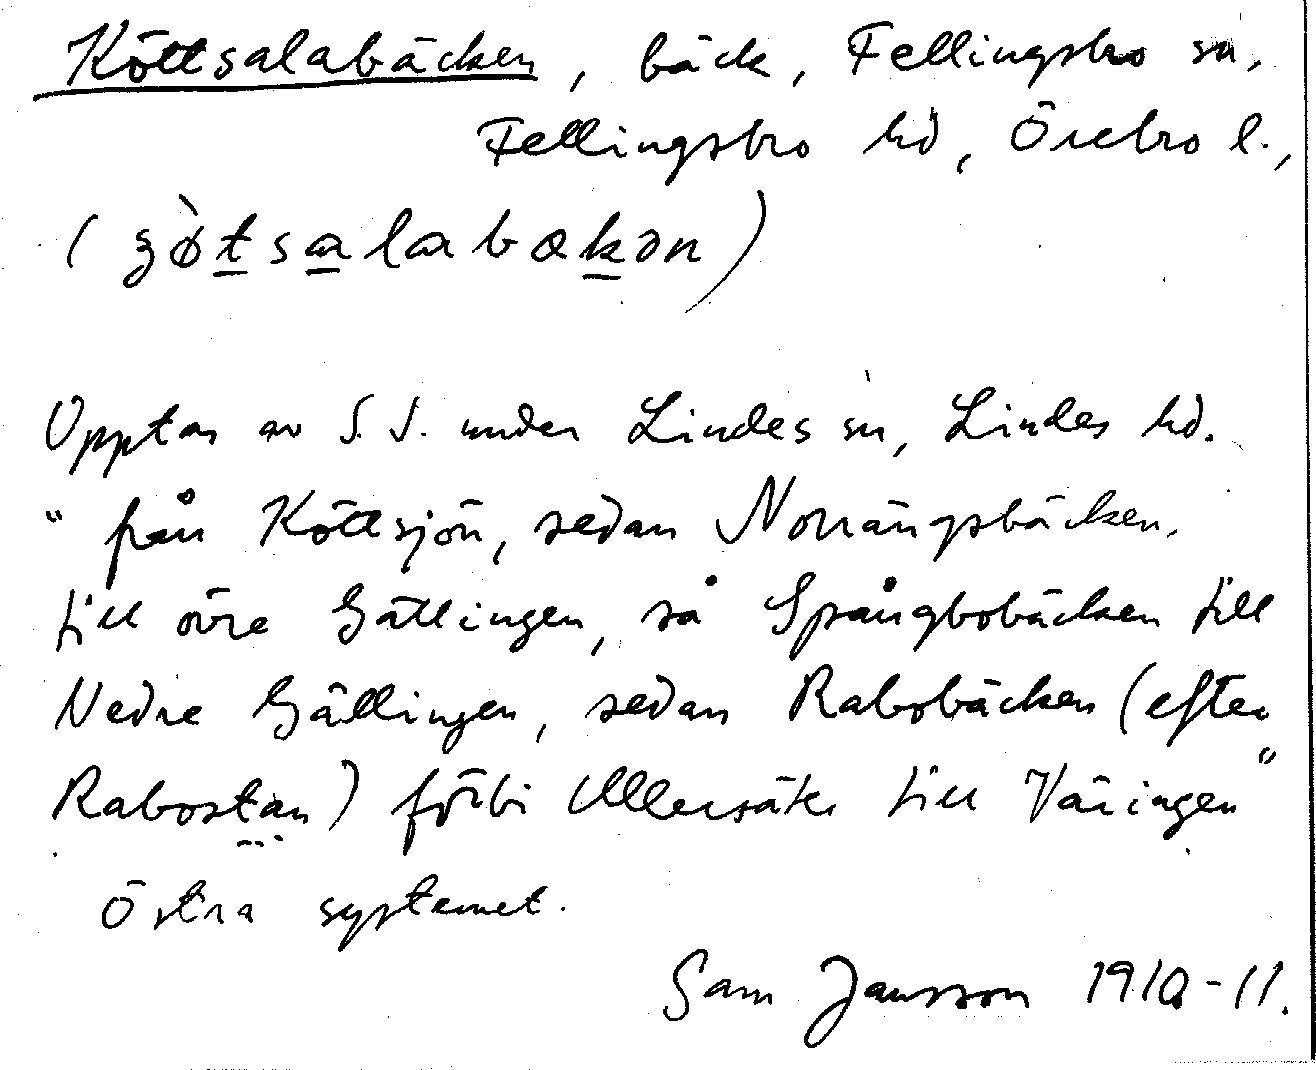 Köttsalabäcken, bäck, Fellingsbro sn,
Fellingsbro hd, Örebro l.,
(ʒø̀tsalabækən)
Upptas av S. J. under Lindes sn, Lindes hd.
"från Köttsjön, sedan Norrängsbäcken,
till övre Gällingen, så Spångbobäcken till
Nedre Gällingen, sedan Rabobäcken (efter
Rabostan) förbi Ullersäter till Väringen"
Östra systemet.
Sam Jansson 1910-11.